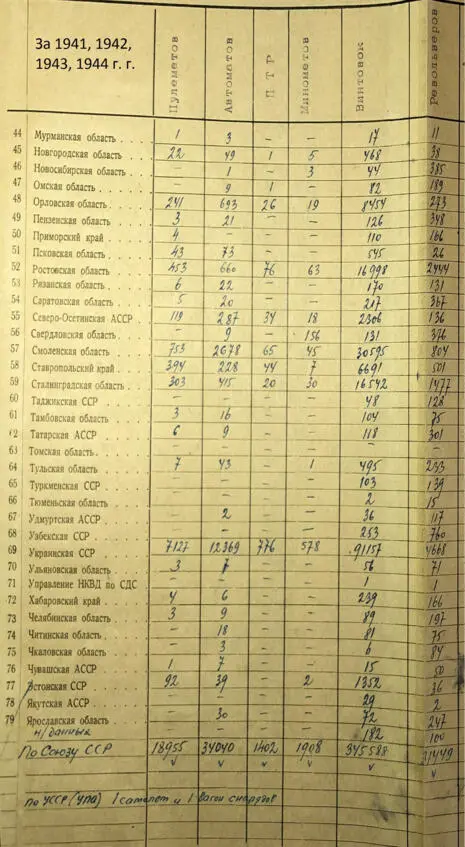 За 1941, 1942,
1943, 1944 г. г.
Пулеметов Автоматов ПТР Минометов Винтовок Револьверов
44 Мурманская область 1 3 — — 17 11
45 Новгородская область 22 49 1 5 468 38
46 Новосибирская область — 1 — 3 44 385
47 Омская область — 9 1 — 82 189
48 Орловская область 241 693 26 19 8454 273
49 Пензенская область 3 21 — — 126 348
50 Приморский край 4 — — — 110 166
51 Псковская область 43 73 — — 545 26
52 Ростовская область 453 660 76 63 16998 2444
53 Рязанская область 6 22 — — 170 131
54 Саратовская область 5 20 — — 217 367
55 Северо-Осетинская АССР 119 287 34 18 2306 136
56 Свердловская область — 9 — 156 131 376
57 Смоленская область 753 2678 65 45 30595 804
58 Ставропольский край 394 228 44 7 6691 501
59 Сталинградская область 303 415 20 30 16542 1477
60 Таджикская ССР — — — — 48 128
61 Тамбовская область 3 16 — — 104 75
62 Татарская АССР 6 9 — — 118 301
63 Томская область — — — — — —
64 Тульская область 7 43 — 1 495 233
65 Туркменская ССР — — — — 103 139
66 Тюменьская область — — — — 2 15
67 Удмуртская АССР — 2 — — 36 117
68 Узбекская ССР — — — — 253 760
69 Украинская ССР 7127 12369 776 578 91157 4668
70 Ульяновская область 3 7 — — 56 71
71 Управление НКВД по СДС — — — — 1 1
72 Хабаровский край 4 6 — — 239 166
73 Челябинская область 3 9 — — 89 197
74 Читинская область — 18 — — 81 75
75 Чкаловская область — 3 — — 6 84
76 Чувашская АССР 1 7 — — 15 50
77 Эстонская ССР 92 39 — 2 1352 36
78 Якутская АССР — — — — 29 2
79 Ярославская область — 30 — — 72 247
н/данных — — — — 182 100
По Союзу ССР 18955 34040 1402 1908 345588 31449
по УССР (УПА) 1 самолет и 1 вагон снарядов